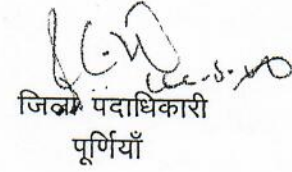 जिला पदाधिकारी
पूर्णियाँ